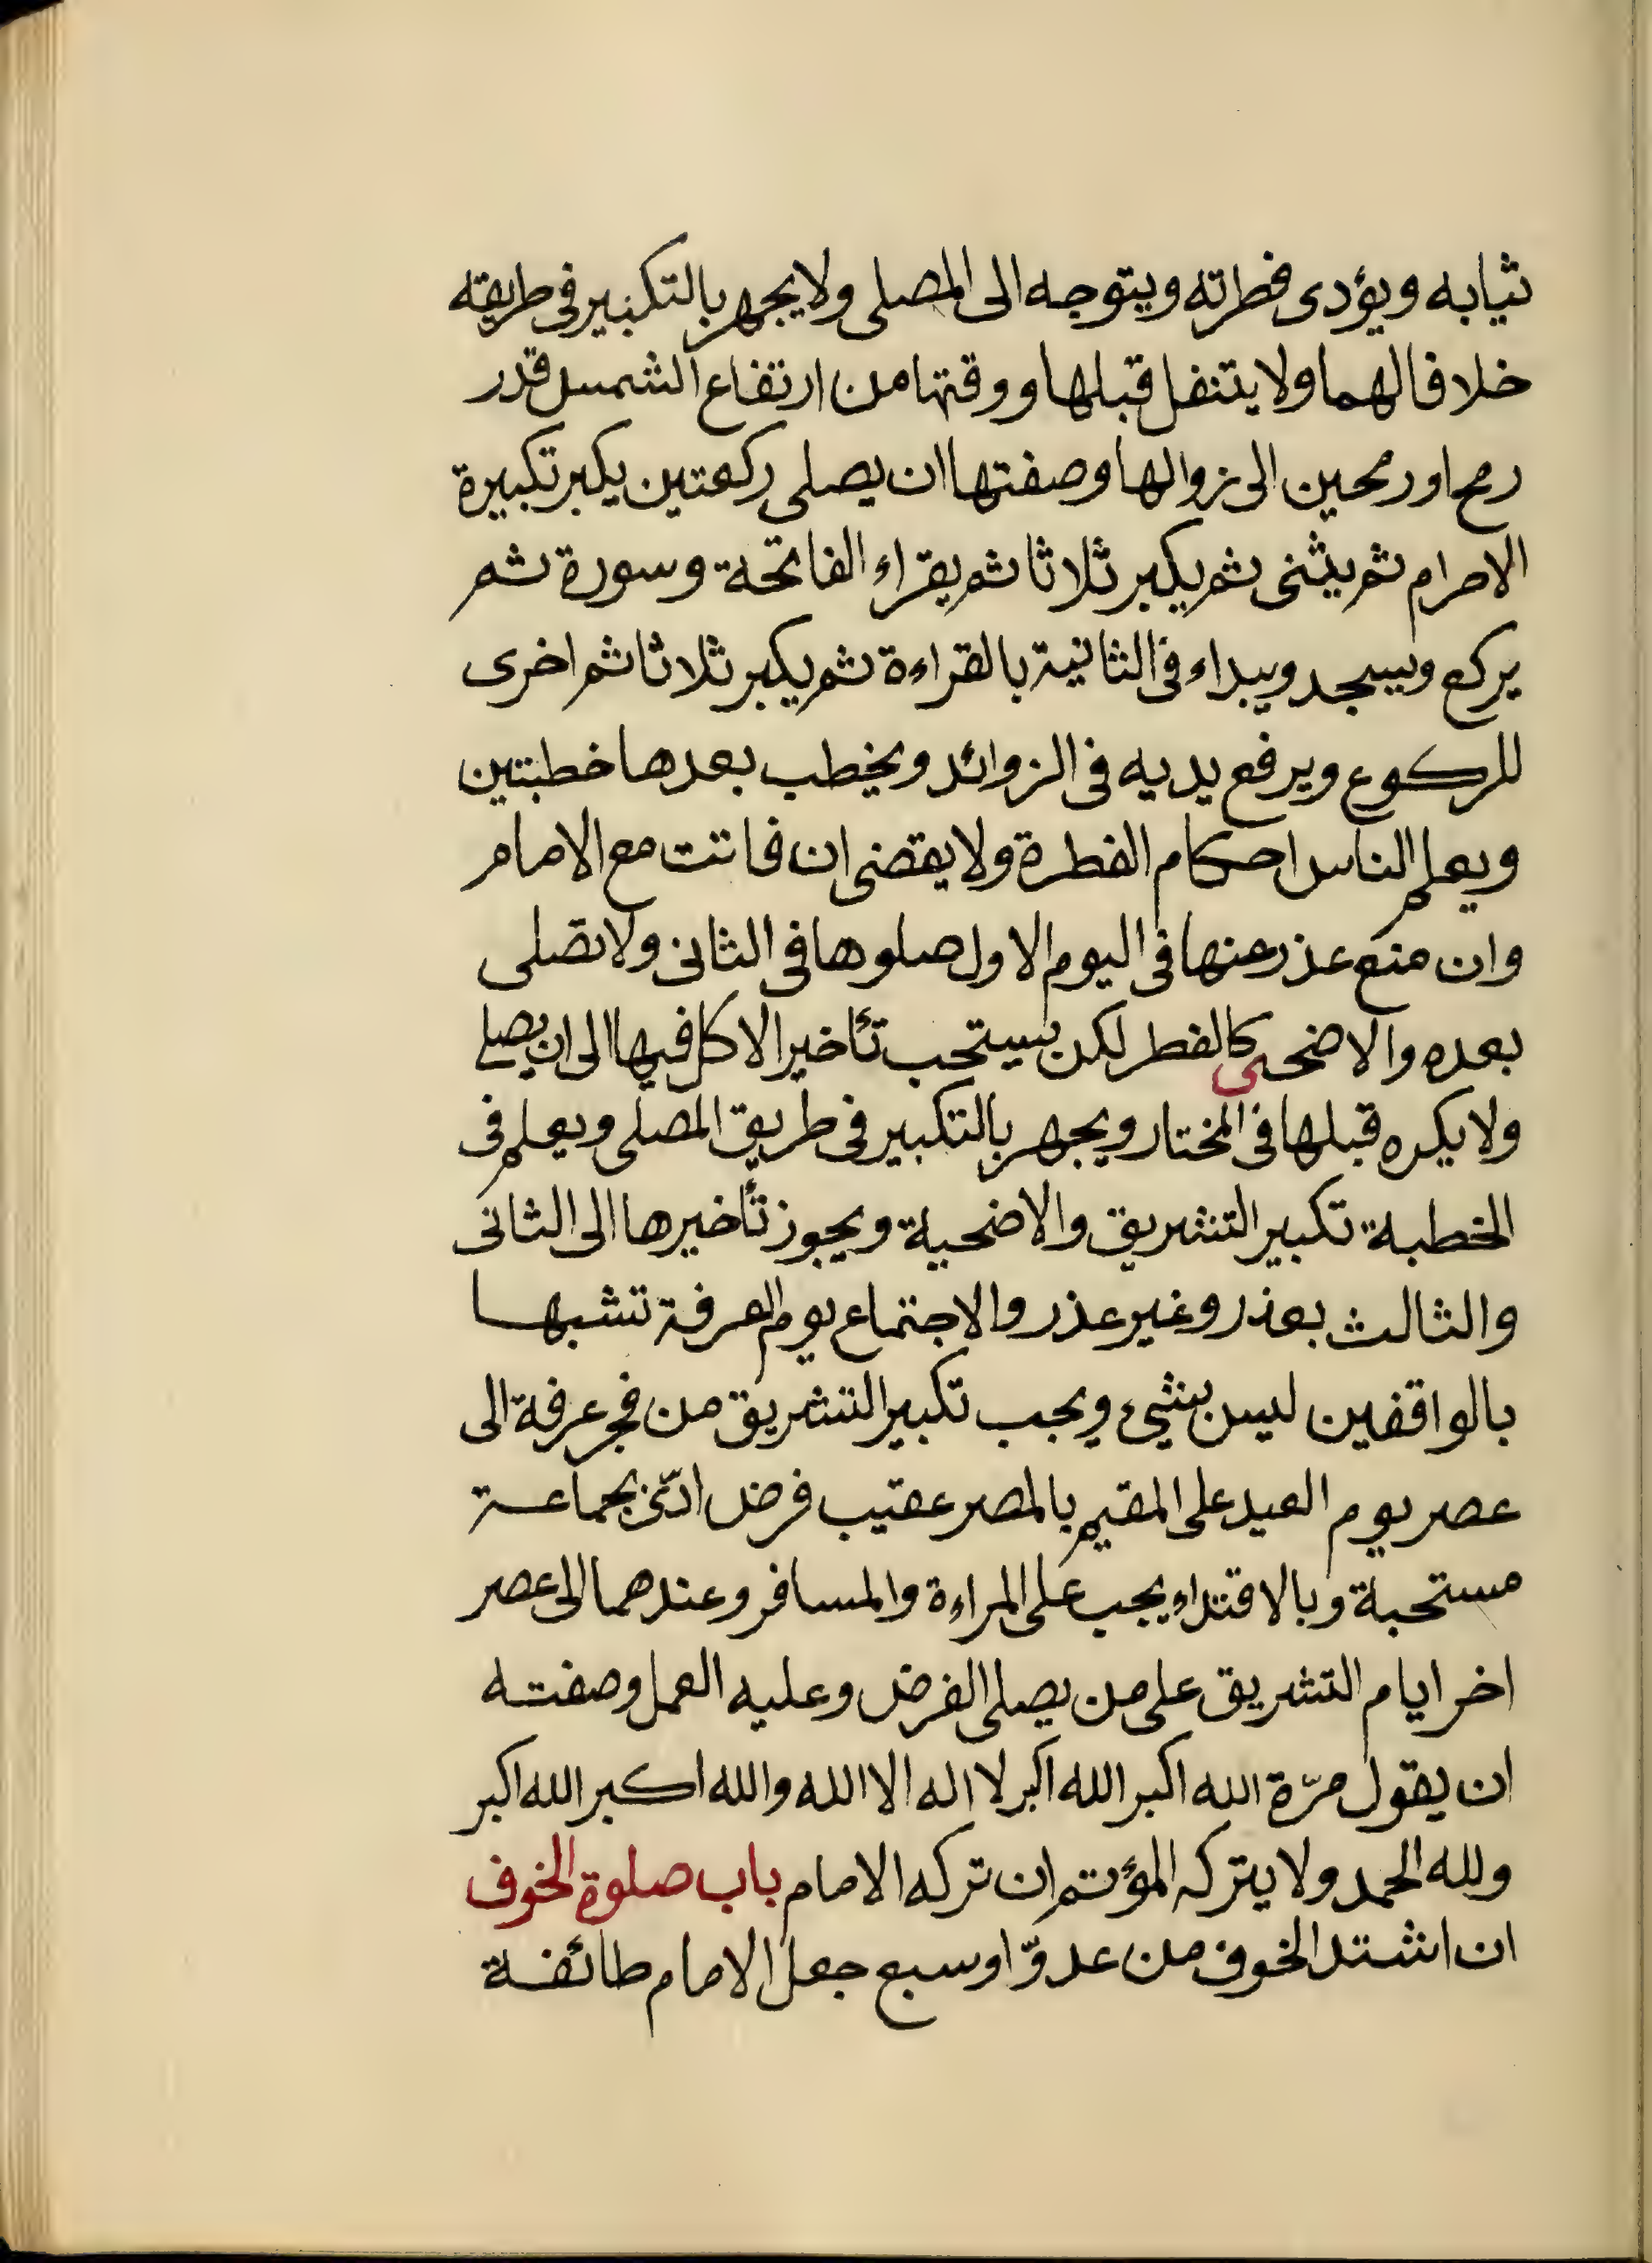 ثيابه ويؤدى فطرته ويتوجه الى المصلى ولا يجهر بالتكبير فى طريقه
خلافا لهما ولا يتنفل قبلها ووقتها من ارتفاع الشمس قدر
رمح او رمحين الى زوالها وصفتها ان يصلى ركعتين يكبر تكبيرة
الاحرام ثم يثنى ثم يكبر ثلاثا ثم يقراء الفاتحة وسورة ثم
يركع ويسجد ويبداء فى الثانية بالقراءة ثم يكبر ثلاثا ثم اخرى
للركوع ويرفع يديه فى الزوائد ويخطب بعدها خطبتين
ويعلم الناس احكام الفطرة ولا يقضى ان فاتت مع الامام
وان منع عذر عنها فى اليوم الاول صلوها فى الثانى ولا تصلى
بعده والاضحى كالفطر لكن يستحب تأخير الاكل فيها الى ان يصلى
ولا يكره قبلها فى المختار ويجهر بالتكبير فى طريق المصلى ويعلم فى
الخطبة تكبير التشريق والاضحية ويجوز تأخيرها الى الثانى
والثالث بعذر وغير عذر والاجتماع يوم العرفة تشبها
بالواقفين ليس بشيء ويجب تكبير التشريق من فجر عرفة الى
عصر يوم العيد على المقيم بالمصر عقيب فرض ادّى بجماعة
مستحبة وبالاقتداء يجب على المراءة والمسافر وعندهما الى عصر
اخر ايام التشريق على من يصلى الفرض وعليه العمل وصفته
ان يقول مرّة الله اكبر الله اكبر لا اله الا الله والله اكبر الله اكبر
ولله الحمد ولا يتركه المؤتم ان تركه الامام باب صلوة الخوف
ان اشتد الخوف من عدوّ او سبع جعل الامام طائفة